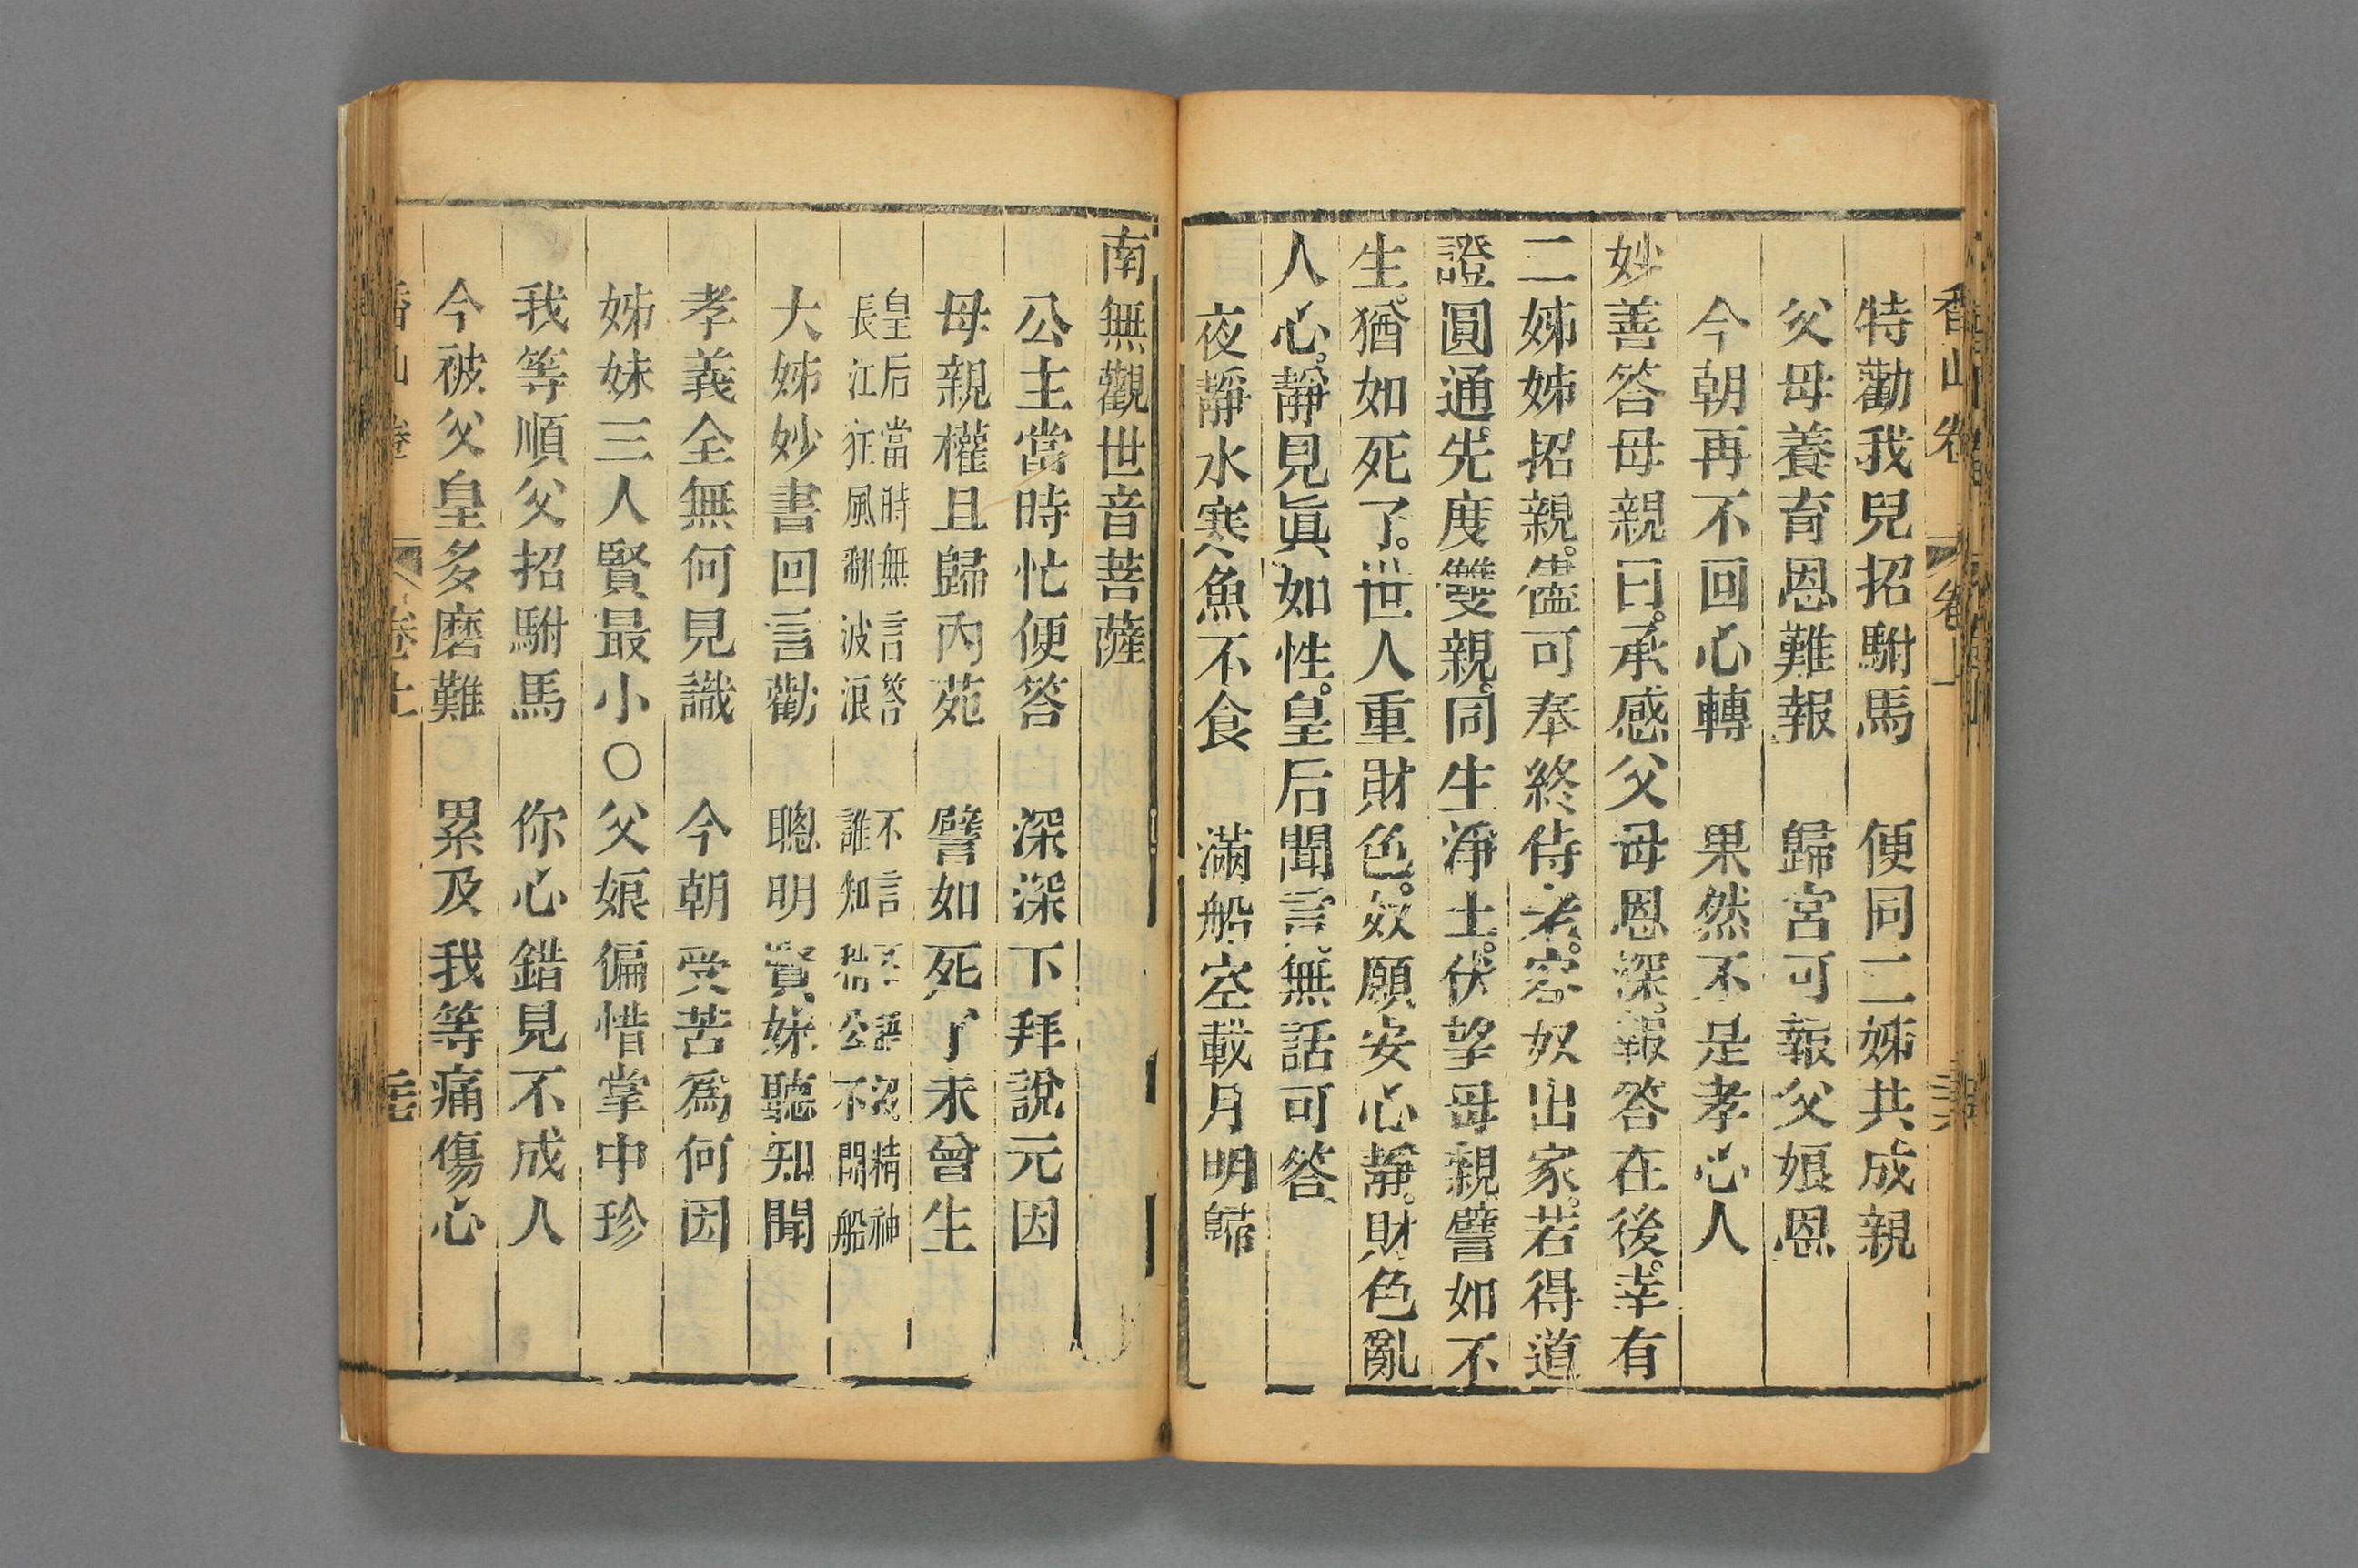 香山卷 卷上
特勸我兒招駙馬 便同二姊共成親
父母養育恩難報 歸宮可報父娘恩
今朝再不回心轉 果然不是孝心人
妙善答母親曰。承感父母恩深。報答在後。幸有
二姊姊招親。儘可奉終侍老。容奴出家。若得道
證圓通。先度雙親。同生淨土。伏望母親。譬如不
生。猶如死了。世人重財色。奴願安心靜。財色亂
人心。靜見眞如性。皇后聞言。無話可答。
夜靜水寒魚不食 滿船空載月明歸
南無觀世音菩薩
公主當時忙便答 深深下拜說元因
母親權且歸內苑 譬如死了未曾生
皇后當時無言答 不言不語沒精神
長江狂風翻波浪 誰知稍公不問船
大姊妙書回言勸 聰明賢妹聽知聞
孝義全無何見識 今朝受苦爲何因
姊妹三人賢最小○父娘偏惜掌中珍
我等順父招駙馬 你心錯見不成人
今被父皇多磨難 累及我等痛傷心
香山卷 卷上